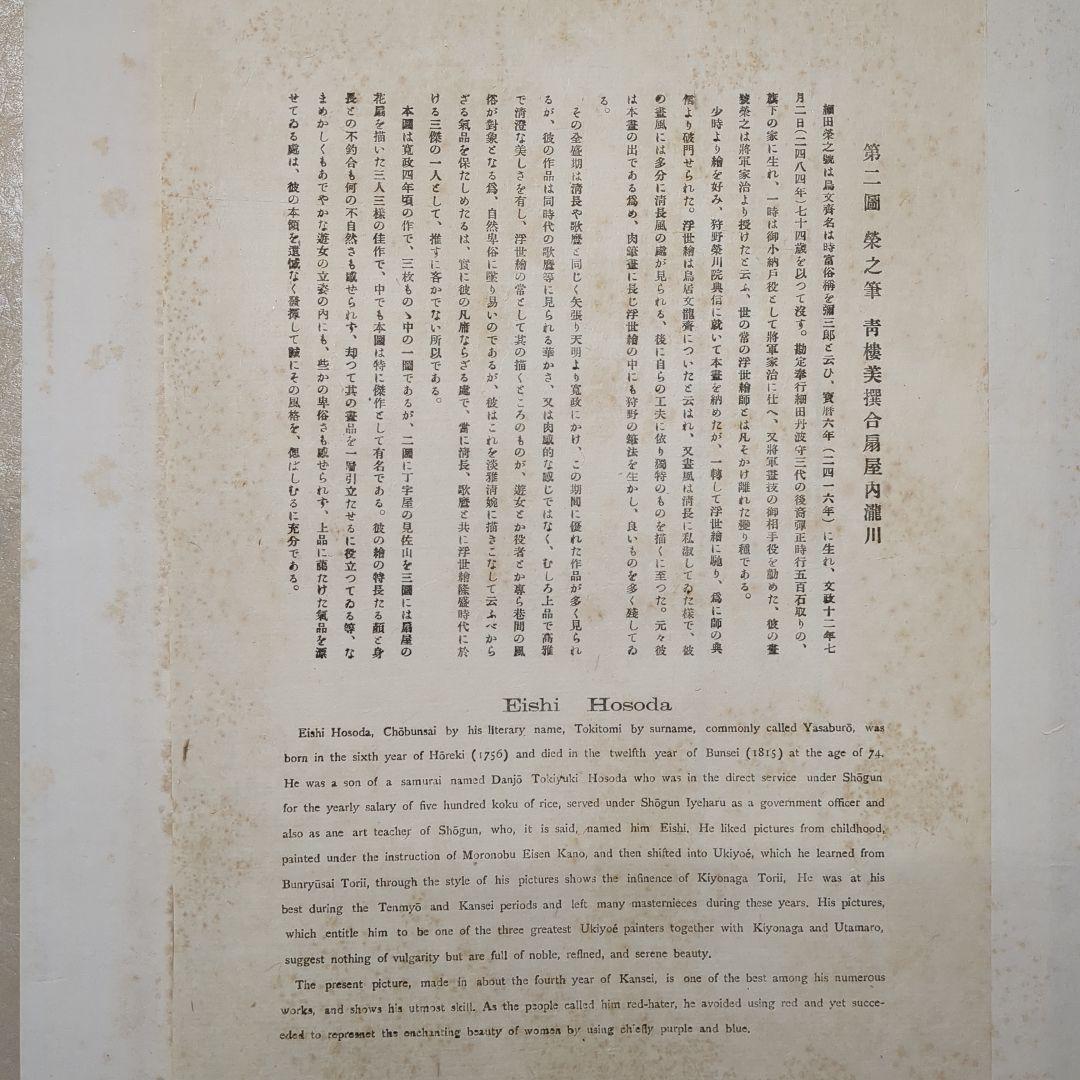 第二圖　榮之筆　靑樓美撰合扇屋內瀧川
細田榮之號は鳥文齊名は時富俗稱を彌三郎と云ひ、寶曆六年（二四一六年）に生れ、文政十二年七
月二日（二四八四年）七十四歲を以つて沒す。勘定奉行細田丹波守三代の後裔彈正時行五百石取りの、
旗下の家に生れ、一時は御小納戶役として將軍家治に仕へ、又將軍畫技の御相手役を勤めた、彼の畫
號榮之は將軍家治より授けたと云ふ、世の常の浮世繪師とは凡そかけ離れた變り種である。
少時より繪を好み、狩野榮川院典信に就いて本畫を納めたが、一轉して浮世繪に馳り、爲に師の典
信より破門せられた。浮世繪は鳥居文龍齊についたと云はれ、又畫風は淸長に私淑してゐた樣で、彼
の畫風には多分に淸長風の處が見られる、後に自らの工夫に依り獨特のものを描くに至つた。元々彼
は本畫の出である爲め、肉筆畫に長じ浮世繪の中にも狩野の筆法を生かし、良いものを多く殘してゐ
る。
その全盛期は淸長や歌麿と同じく矢張り天明より寬政にかけ、この期間に優れた作品が多く見られ
るが、彼の作品は同時代の歌麿等に見られる華かさ、又は肉感的な感じではなく、むしろ上品で高雅
で淸澄な美しさを有し、浮世繪の常として其の描くところのものが、遊女とか役者とか專ら巷間の風
俗が對象となる爲、自然卑俗に墜り易いのであるが、彼はこれを淡雅淸婉に描きこなして云ふべから
ざる氣品を保たしめたるは、實に彼の凡庸ならざる處で、當に淸長、歌麿と共に浮世繪隆盛時代に於
ける三傑の一人として、推すに吝かでない所以である。
本圖は寬政四年頃の作で、三枚ものゝ中の一圖であるが、二圖に丁字屋の見佐山を三圖には扇屋の
花扇を描いた三人三樣の佳作で、中でも本圖は特に傑作として有名である。彼の繪の特長たる顏と身
長との不釣合も何の不自然さも感せられず、却つて其の畫品を一層引立たせるに役立つてゐる等、な
まめかしくもあでやかな遊女の立姿の內にも、些かの卑俗さも感せられず、上品に﨟たけた氣品を漂
せてゐる處は、彼の本領を遺憾なく發揮して誠にその風格を、偲ばしむるに充分である。
Eishi Hosoda
Eishi Hosoda, Chōbunsai by his literary name, Tokitomi by surname, commonly called Yasaburō, was
born in the sixth year of Hōreki (1756) and died in the twelfth year of Bunsei (1815) at the age of 74.
He was a son of a samurai named Danjō Tokiyuki Hosoda who was in the direct service under Shōgun
for the yearly salary of five hundred koku of rice, served under Shōgun Iyeharu as a government officer and
also as ane art teacher of Shōgun, who, it is said, named him Eishi. He liked pictures from childhood,
painted under the instruction of Moronobu Eisen Kano, and then shifted into Ukiyoé, which he learned from
Bunryūsai Torii, through the style of his pictures shows the infinence of Kiyonaga Torii, He was at his
best during the Tenmyō and Kansei periods and left many masternieces during these years. His pictures,
which entitle him to be one of the three greatest Ukiyoé painters together with Kiyonaga and Utamaro,
suggest nothing of vulgarity but are full of noble, reflned, and serene beauty.
The present picture, made in about the fourth year of Kansei, is one of the best among his numerous
works, and shows his utmost skill. As the people called him red-hater, he avoided using red and yet succe-
eded to represnet the enchanting beauty of women by using chiefly purple and blue.